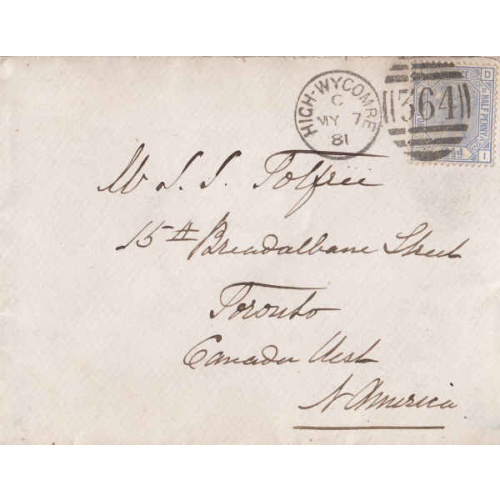 HIGH-WYCOMBE
C
MY 7
81
364
HALF PENNY
D
I
Mr S. S. Tolfree
15 A Breadalbane Street
Toronto
Canada West
N America